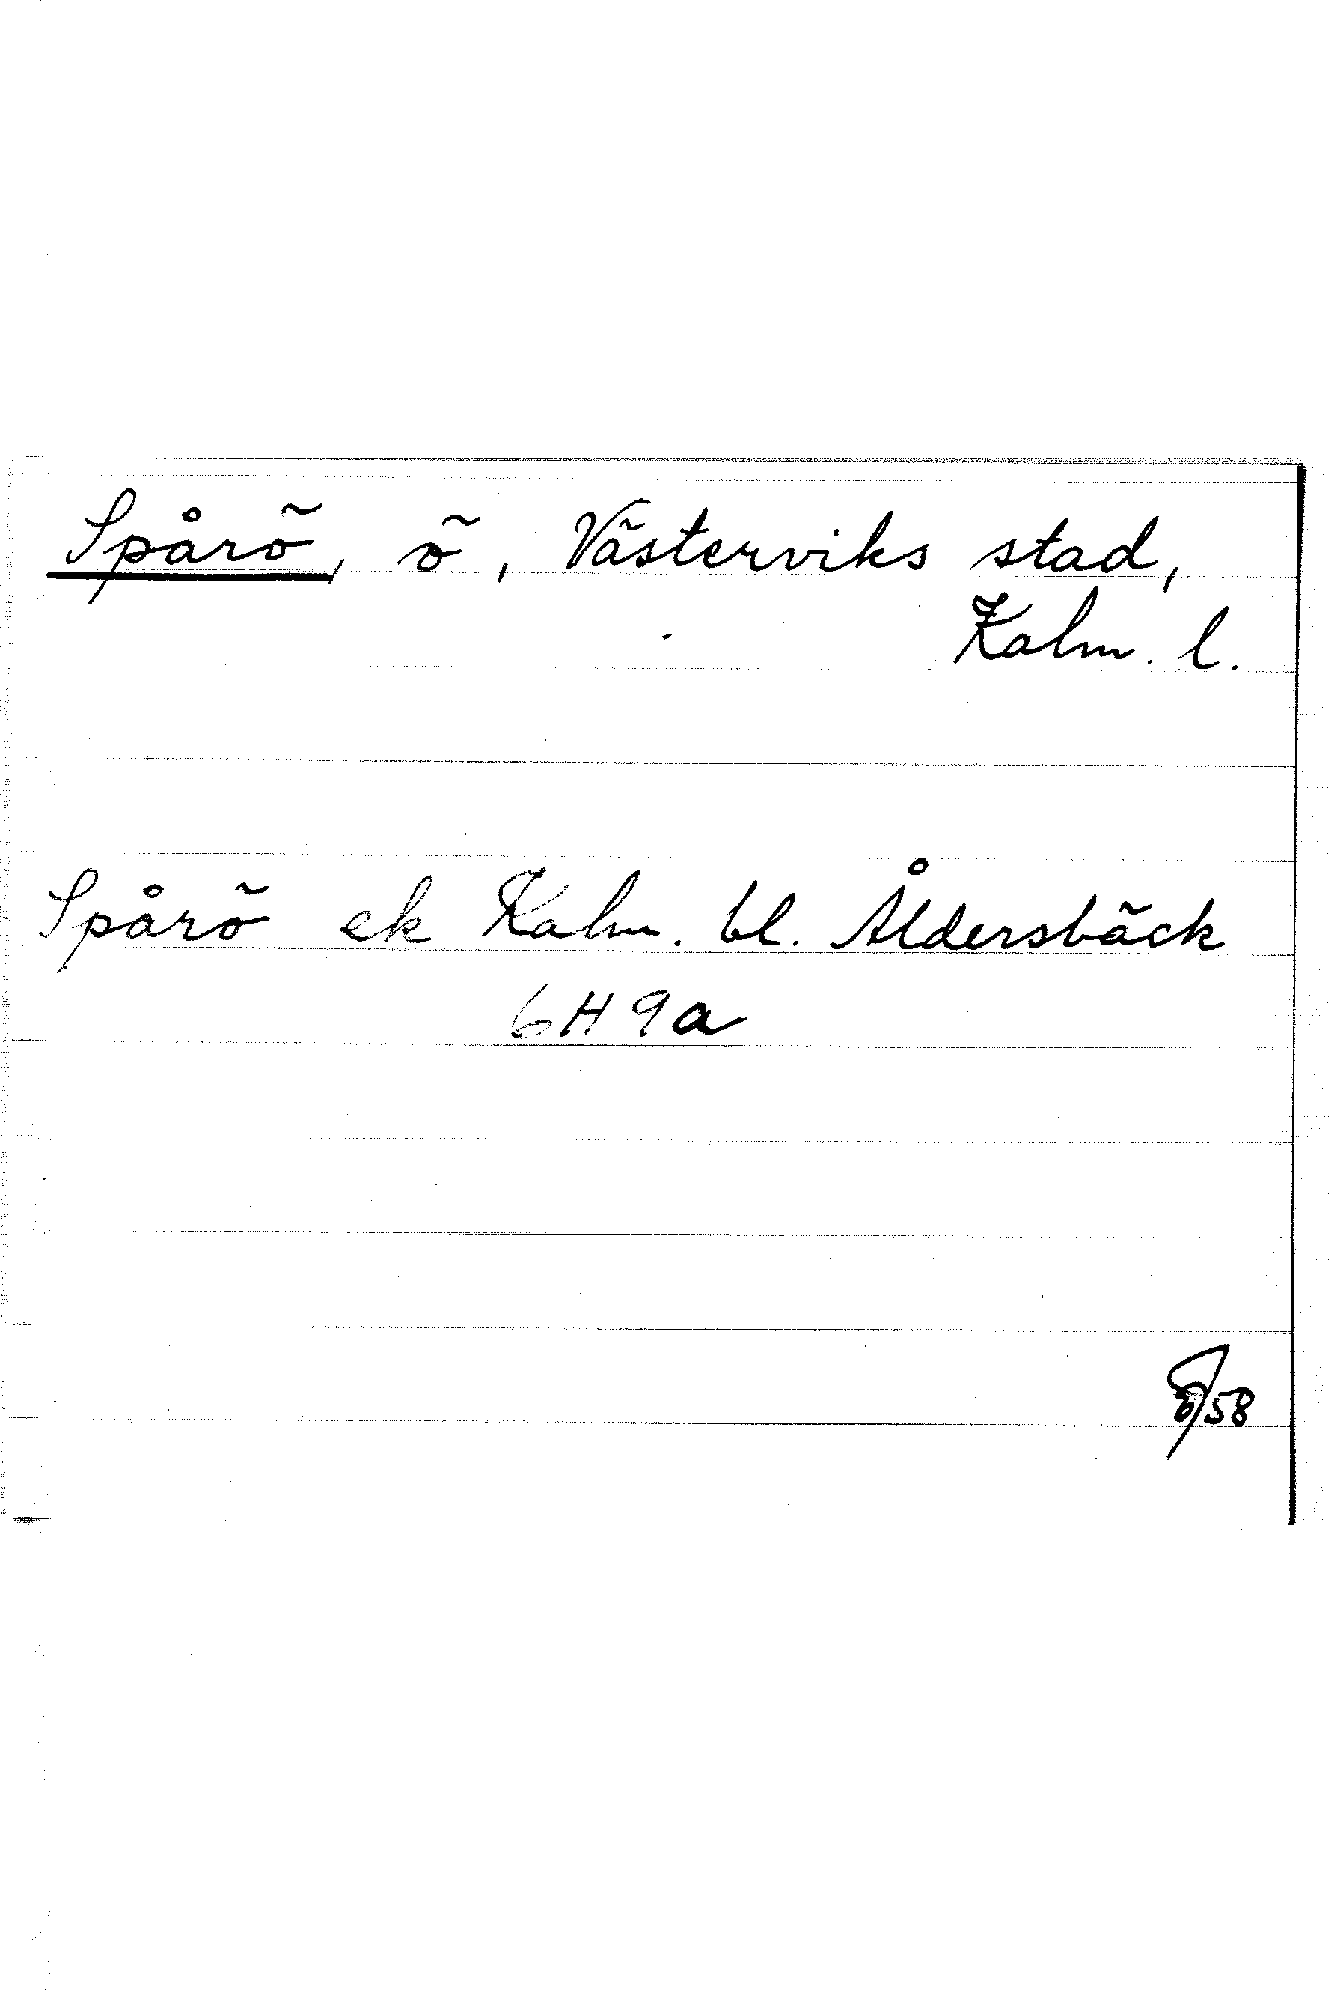 Spårö, ö, Västerviks stad,
Kalm. l.
Spårö ek Kalm. bl. Åldersbäck
6H 9a
/58